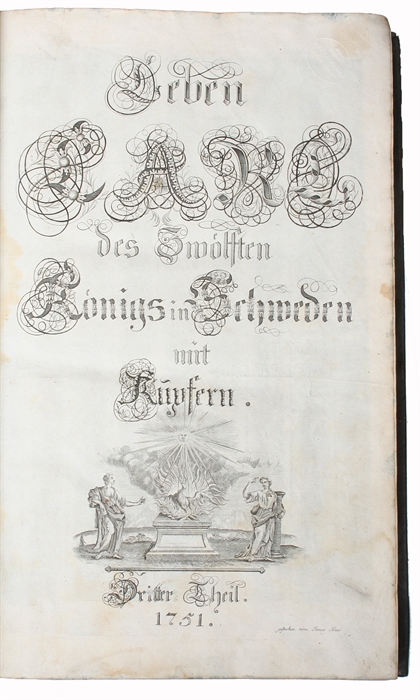 Leben
CARL
des Zwölften
Königs in Schweden
mit
Kupfern.
Dritter Theil.
1751.